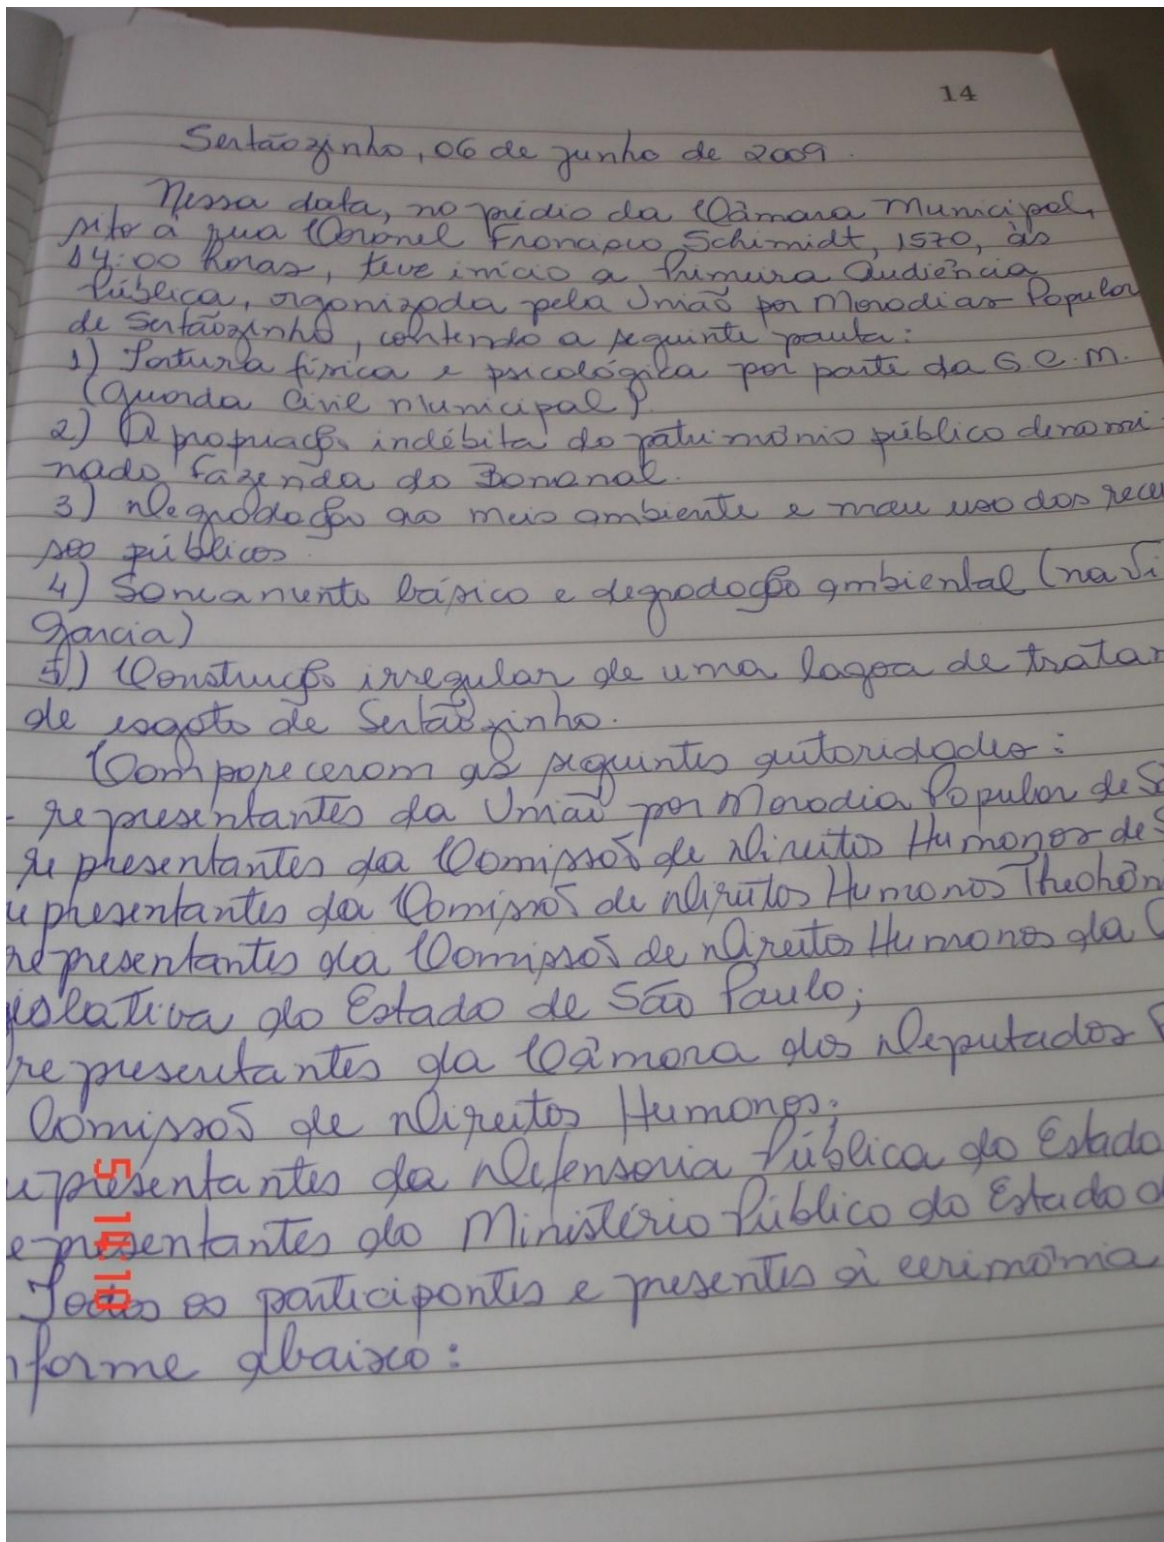 14
Sertãozinho, 06 de junho de 2009.
Nessa data, no prédio da Câmara Municipal,
sito à rua Coronel Francisco Schimidt, 1570, às
14:00 horas, teve início a Primeira Audiência
Pública, organizada pela União por Moradias Popular
de Sertãozinho, contendo a seguinte pauta:
1) Tortura física e psicológica por parte da G.C.M.
(Guarda Civil Municipal)
2) Apropriação indébita do patrimônio público denomi
nado Fazenda do Bananal.
3) Degradação ao meio ambiente e mau uso dos recu
sos públicos
4) Saneamento básico e degradação ambiental (na Vi
Garcia)
5) Construção irregular de uma lagoa de tratam
de esgoto de Sertãozinho.
Compareceram as seguintes autoridades:
- representantes da União por Moradia Popular de S
representantes da Comissão de Direitos Humanos de S
representantes da Comissão de Direitos Humanos Theohôn
representantes da Comissão de Direitos Humanos da
islativa do Estado de São Paulo;
representantes da Câmara dos Deputados F
Comissão de Direitos Humanos;
representantes da Defensoria Pública do Estado
epresentantes do Ministério Público do Estado d
Todos os participantes e presentes à cerimônia
nforme abaixo:
5 14:10